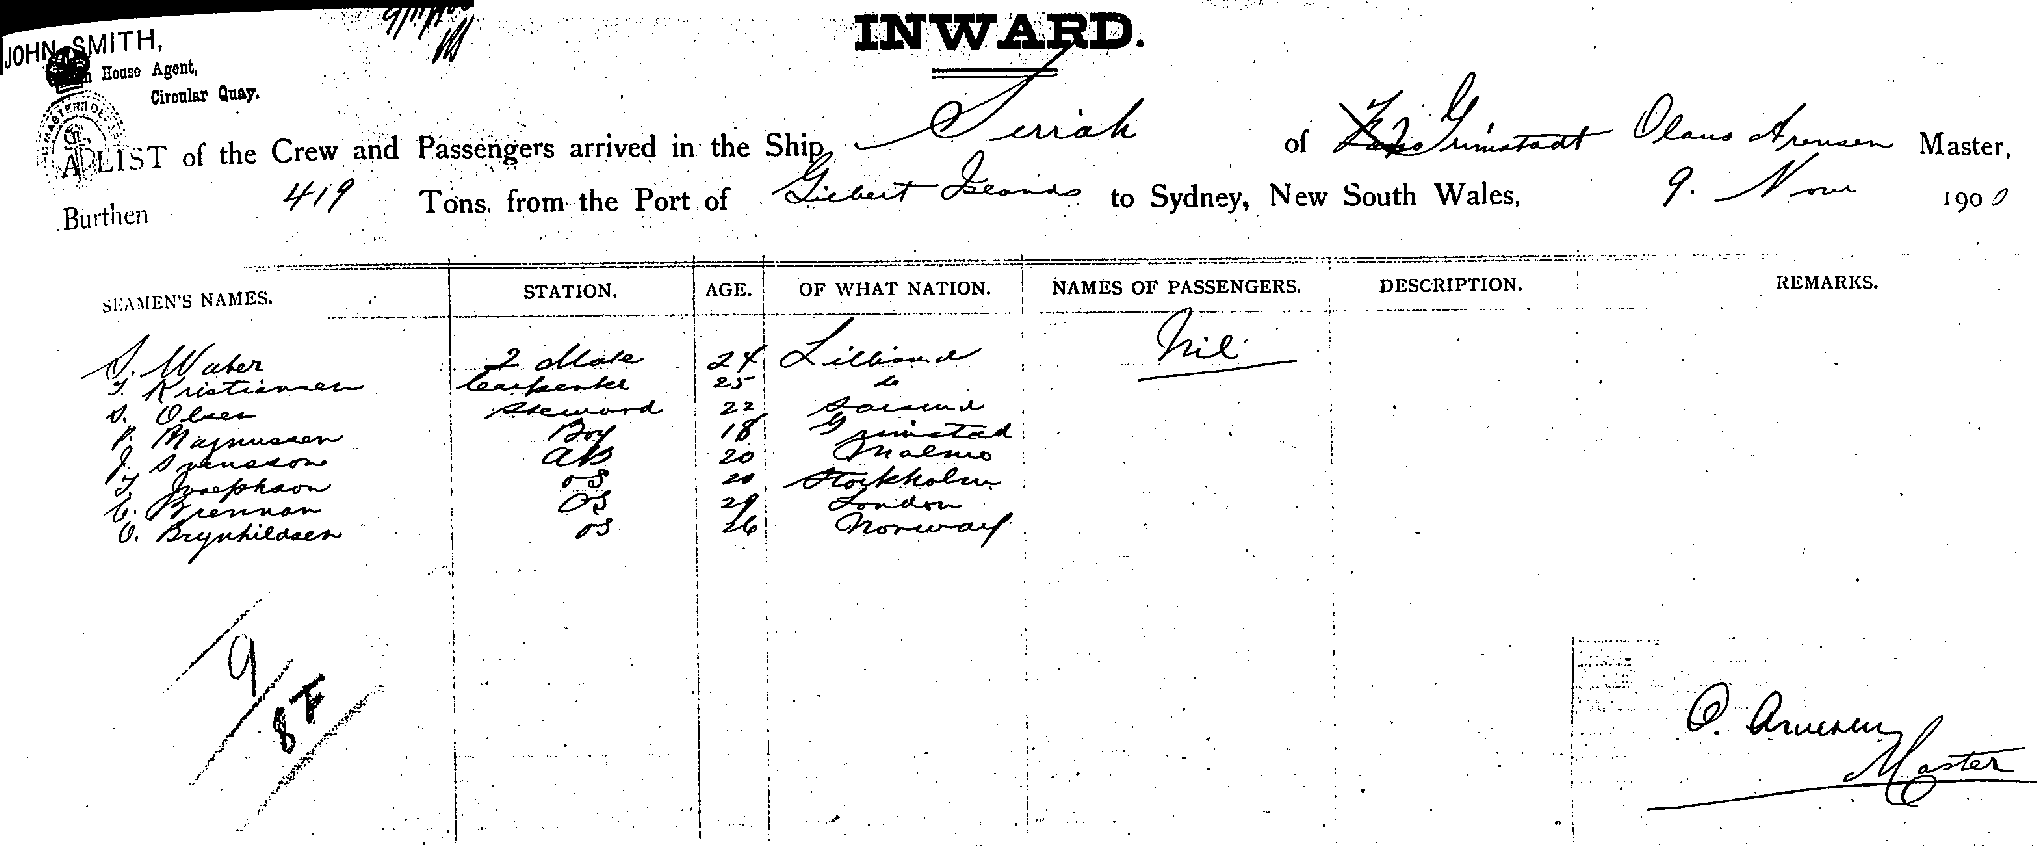 INWARD.
JOHN SMITH,
House Agent,
Circular Quay.
A LIST of the Crew and Passengers arrived in the Ship Serrah of Grimstadt Olaus Arensen Master,
Burthen 419 Tons. from the Port of Giebert Islands to Sydney, New South Wales, 9. Novr 1900
SEAMEN'S NAMES. STATION. AGE. OF WHAT NATION. NAMES OF PASSENGERS. DESCRIPTION. REMARKS.
S. Waber 2 Mate 24 Nil
T. Kristiansen Carpenter 25 do
S. Olsen Steward 22
P. Magnussen Boy 18 Grimstad
J. Svensson AB 20 Malmo
T. Josephson OS 20 Stockholm
C. Brennan OS 29 London
O. Brynhildsen OS 26 Norway
9
8 F
O. Arnesen
Master